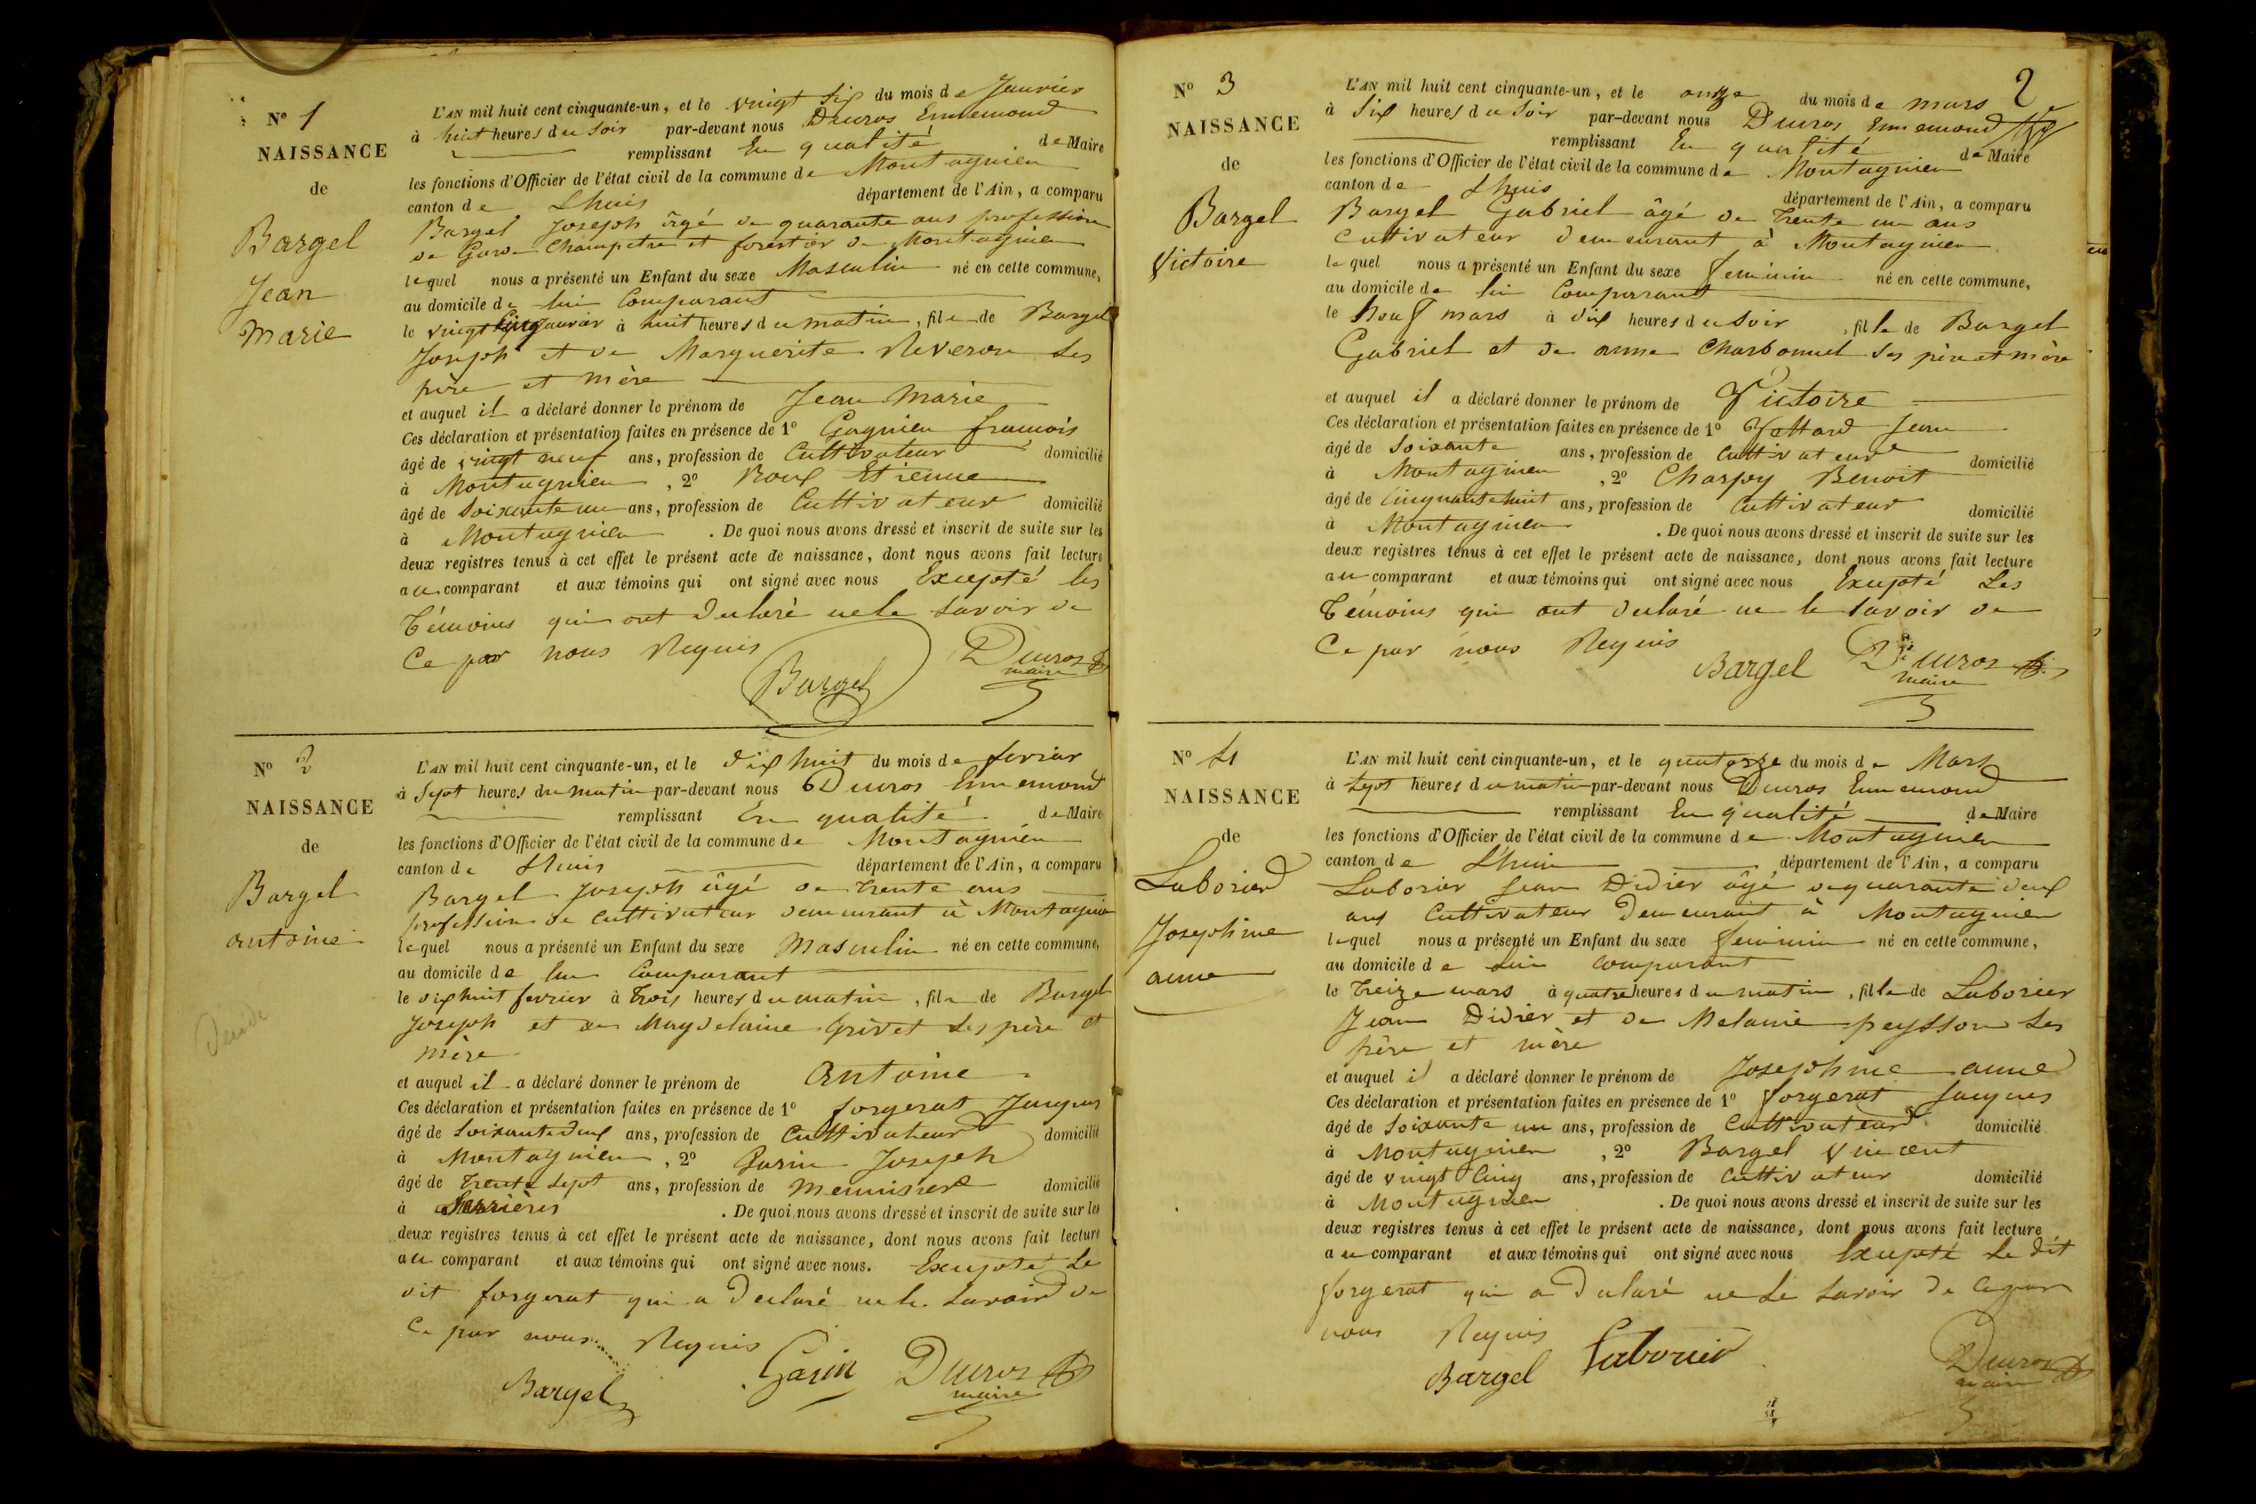 N° 1
NAISSANCE
de
Bargel
Jean
Marie
L'AN mil huit cent cinquante-un, et le vingt Six du mois de Janvier
à huit heures du Soir par-devant nous Ducros Ennemond
remplissant En qualité de Maire
les fonctions d'Officier de l'état civil de la commune de Montagnieu
canton de Lhuis département de l'Ain, a comparu
Bargel Joseph âgé de quarante ans profession
de Garde Champetre et forestier de Montagnieu
lequel nous a présenté un Enfant du sexe Masculin né en cette commune,
au domicile de lui Comparant
le vingt Cinq janvier à huit heures du matin, fils de Bargel
Joseph et de Marguerite Reveron Ses
père et mère
et auquel il a déclaré donner le prénom de Jean Marie
Ces déclaration et présentation faites en présence de 1° Gagnieu francois
âgé de vingt neuf ans, profession de Cultivateur domicilié
à Montagnieu, 2° Roux Etienne
âgé de Soixante un ans, profession de Cultivateur domicilié
à Montagnieu. De quoi nous avons dressé et inscrit de suite sur les
deux registres tenus à cet effet le présent acte de naissance, dont nous avons fait lecture
au comparant et aux témoins qui ont signé avec nous Excepté les
Témoins qui ont déclaré ne le Savoir de
Ce par nous Requis
Bargel Ducros
maire
N° 2
NAISSANCE
de
Bargel
antoine
L'AN mil huit cent cinquante-un, et le dix huit du mois de fevrier
à Sept heures du matin par-devant nous Ducros Ennemond
remplissant En qualité de Maire
les fonctions d'Officier de l'état civil de la commune de Montagnieu
canton de Lhuis département de l'Ain, a comparu
Bargel Joseph âgé de Trente ans
profession de Cultivateur demeurant à Montagnieu
lequel nous a présenté un Enfant du sexe Masculin né en cette commune,
au domicile de lui Comparant
le dix huit fevrier à Trois heures du matin, fils de Bargel
Joseph et de Magdelaine Grivet Ses père et
mère
et auquel il a déclaré donner le prénom de antoine
Ces déclaration et présentation faites en présence de 1° forgerat Jacques
âgé de Soixante deux ans, profession de Cultivateur domicilié
à Montagnieu, 2° Garin Joseph
âgé de Trente Sept ans, profession de Menuisier domicilié
à Serrières. De quoi nous avons dressé et inscrit de suite sur les
deux registres tenus à cet effet le présent acte de naissance, dont nous avons fait lecture
au comparant et aux témoins qui ont signé avec nous. Excepté Le
dit forgerat qui a déclaré ne le Savoir de
Ce par nous Requis
Bargel Garin Ducros
maire
2
N° 3
NAISSANCE
de
Bargel
Victoire
L'AN mil huit cent cinquante-un, et le onze du mois de mars
à Six heures du Soir par-devant nous Ducros Ennemond
remplissant En qualité de Maire
les fonctions d'Officier de l'état civil de la commune de Montagnieu
canton de Lhuis département de l'Ain, a comparu
Bargel Gabriel âgé de Trente un ans
Cultivateur demeurant à Montagnieu
lequel nous a présenté un Enfant du sexe feminin né en cette commune,
au domicile de lui Comparant
le Neuf mars à dix heures du Soir, fille de Bargel
Gabriel et de anne Charbonnel Ses père et mère
et auquel il a déclaré donner le prénom de Victoire
Ces déclaration et présentation faites en présence de 1° Vettard Jean
âgé de Soixante ans, profession de Cultivateur domicilié
à Montagnieu, 2° Charpy Benoit
âgé de Cinquante huit ans, profession de Cultivateur domicilié
à Montagnieu. De quoi nous avons dressé et inscrit de suite sur les
deux registres tenus à cet effet le présent acte de naissance, dont nous avons fait lecture
au comparant et aux témoins qui ont signé avec nous Excepté Les
Témoins qui ont déclaré ne le Savoir de
Ce par nous Requis
Bargel Ducros
maire
N° 4
NAISSANCE
de
Laborier
Josephine
anne
L'AN mil huit cent cinquante-un, et le quatorze du mois de Mars
à Sept heures du matin par-devant nous Ducros Ennemond
remplissant En qualité de Maire
les fonctions d'Officier de l'état civil de la commune de Montagnieu
canton de Lhuis département de l'Ain, a comparu
Laborier Jean Didier âgé de quarante deux
ans Cultivateur demeurant à Montagnieu
lequel nous a présenté un Enfant du sexe feminin né en cette commune,
au domicile de Lui comparant
le Treize mars à quatre heures du matin, fille de Laborier
Jean Didier et de Melanie peysson Ses
père et mère
et auquel il a déclaré donner le prénom de Josephine anne
Ces déclaration et présentation faites en présence de 1° forgerat Jacques
âgé de Soixante un ans, profession de Cultivateur domicilié
à Montagnieu, 2° Bargel Vincent
âgé de vingt Cinq ans, profession de Cultivateur domicilié
à Montagnieu. De quoi nous avons dressé et inscrit de suite sur les
deux registres tenus à cet effet le présent acte de naissance, dont nous avons fait lecture
au comparant et aux témoins qui ont signé avec nous Excepté Le dit
forgerat qui a déclaré ne Le Savoir de Ce par
nous Requis
Bargel Laborier Ducros
maire